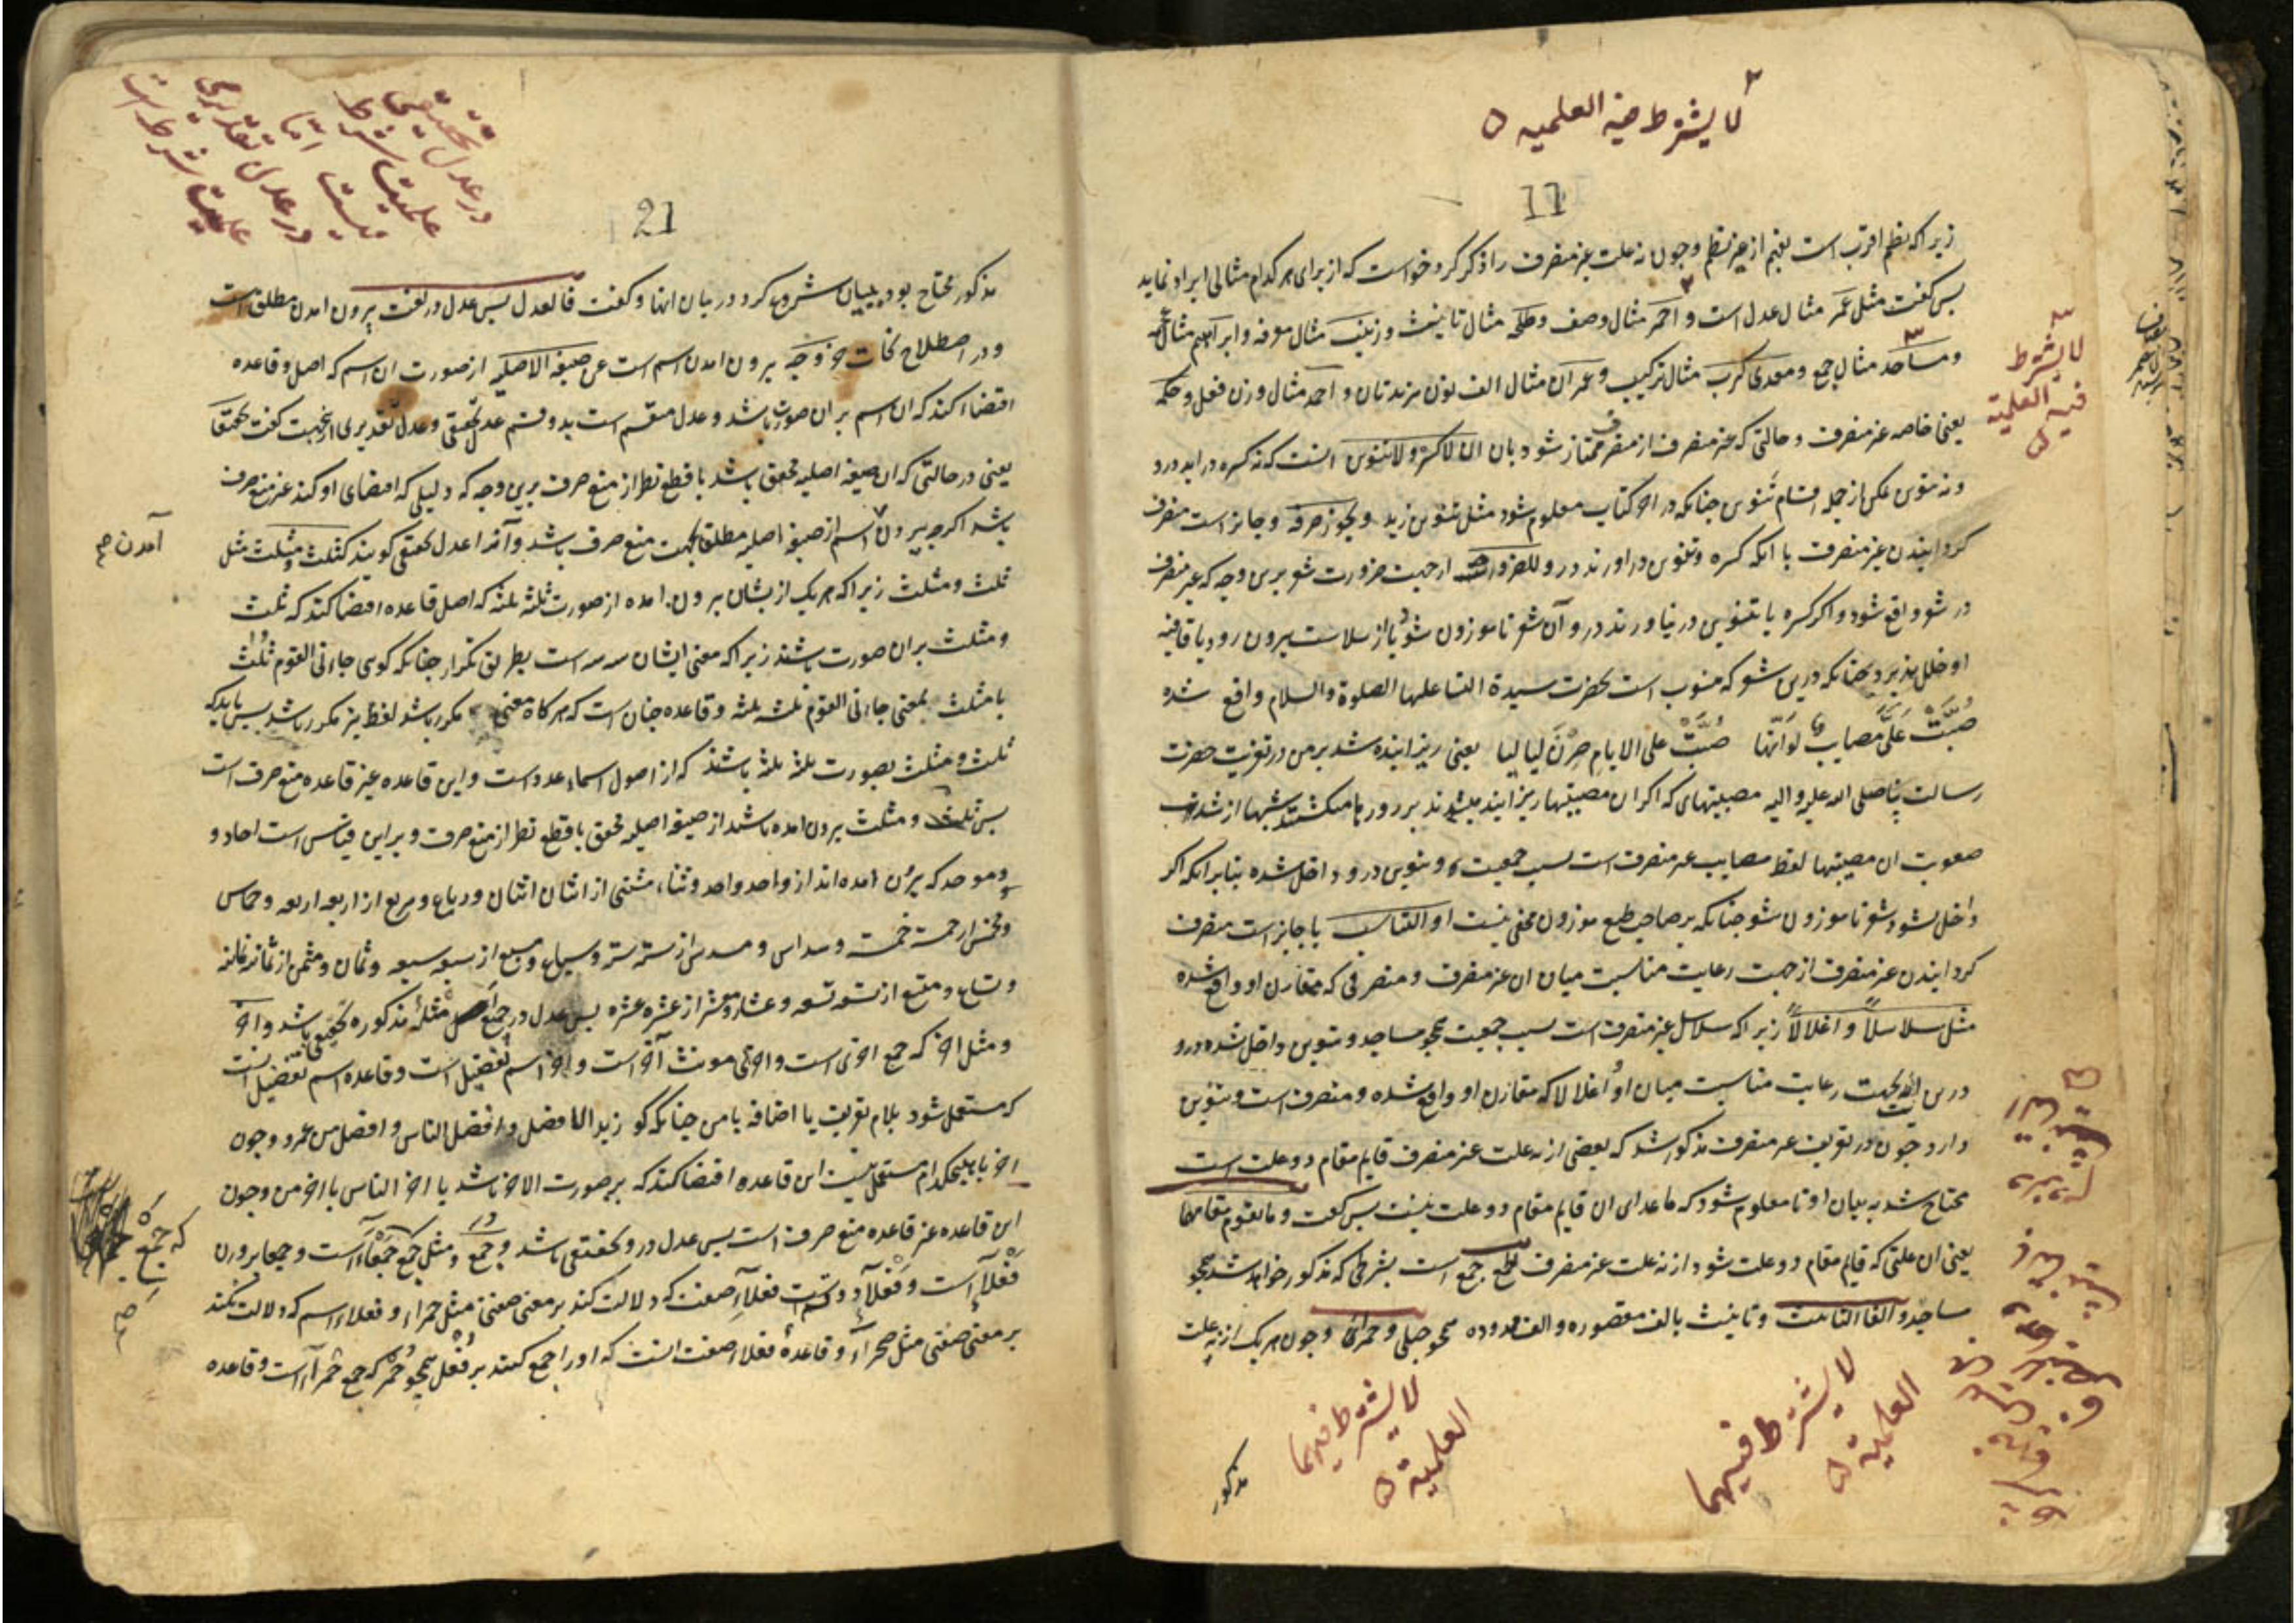 لا یشترط فیه العلمیه
11
زیرا که نظم اقرب است بفهم از غیر نظم و چون نه علت غیر منصرف را ذکر کرد خواست که از برای هر کدام مثالی ایراد نماید
بس کفت مثل عمر مثال عدل است و احمر مثال وصف و طلحه مثال تانیث و زینب مثال معرفه و ابراهیم مثال عجمه
و مساجد مثال جمع و معدی کرب مثال ترکیب و عمران مثال الف نون مزیدتان و احمد مثال وزن فعل و حکمه
یعنی خاصه غیر منصرف و حالتی که غیر منصرف از منصرف ممتاز شود بان ان لا کسر و لا تنوین انست که نه کسره دراید درو
و نه تنوین تمکن از جمله اقسام تنوین چنانکه در اخر کتاب معلوم شود مثل تنوین زید و یجوز صرفه و جایز است منصرف
کردانیدن غیر منصرف با انکه کسره و تنوین در اورند درو للضرورة از جهت ضرورت شعر برین وجه که غیر منصرف
در شعر واقع شود و اکر کسره یا تنوین در نیاورند درو آن شعر ناموزون شود یا از سلاست بیرون رود یا قافیه
او خلل پذیرد چنانکه درین شعر که منسوب است بحضرت سیدة النسا علیها الصلوة والسلام واقع شده
صُبَّتْ عَلَیَّ مصایبٌ لَوْ اَنّها صُبَّتْ علی الایام صِرْنَ لیالیا یعنی ریزانیده شد بر من در تعزیت حضرت
رسالت پناه صلی الله علیه و اله مصیبتهای که اکر ان مصیبتها ریزانیده میشدند بر روزها میکشتند شبها از شدت
صعوبت ان مصیبتها لفظ مصایب غیر منصرف است بسبب جمعیت و تنوین درو داخل شده بنابر انکه اکر
داخل نشود شعر ناموزون شود چنانکه بر صاحب طبع موزون مخفی نیست او التناسب یا جایز است منصرف
کردانیدن غیر منصرف از جهت رعایت مناسبت میان ان غیر منصرف و منصرفی که مقارن او واقع شده
مثل سلاسلاً و اغلالاً زیرا که سلاسل غیر منصرف است بسبب جمعیت همچو مساجد و تنوین داخل شده درو
درین ایه بجهت رعایت مناسبت میان او و اغلالا که مقارن او واقع شده و منصرف است و تنوین
دارد چون در تعریف غیر منصرف مذکور شد که بعضی از نه علت غیر منصرف قایم مقام دو علت است
محتاج شد به بیان او تا معلوم شود که ماعدای ان قایم مقام دو علت نیست بس کفت و ما یقوم مقامهما
یعنی ان علتی که قایم مقام دو علت شود از نه علت غیر منصرف الجمع جمع است بشرطی که مذکور خواهد شد همچو
مساجد و الفا التانیث و تانیث بالف مقصوره و الف ممدوده همچو حبلی و حمراء و چون هر یک از نه علت
لا یشترط
فیه العلمیة
لا یشترط فیهما
العلمیة
لا یشترط فیهما
العلمیة
مذکور
21
در عدل تحقیقی
علمیت شرط
نیست اما
در عدل تقدیری
علمیت شرط است
مذکور محتاج بود ببیان شروع کرد در بیان انها و کفت فالعدل بس عدل در لغت بیرون امدن مطلق است
و در اصطلاح نحات خروجه بیرون امدن اسم است عن صیغته الاصلیه از صورت ان اسم که اصل و قاعده
اقتضاء کند که ان اسم بران صورت باشد و عدل منقسم است بدو قسم عدل تحقیقی و عدل تقدیری ازینجهت کفت تحقیقا
یعنی در حالتی که ان صیغه اصلیه محقق باشد با قطع نظر از منع صرف برین وجه که دلیلی که اقتضای او کند غیر منع صرف
باشد اکرچه بیرون اسم از صیغه اصلیه مطلقا بجهت منع صرف باشد و آنرا عدل تحقیقی کویند کثلث و مثلث مثل
آمدن صح
ثلث و مثلث زیرا که هر یک از یشان بیرون امده از صورت ثلثه ثلثه که اصل قاعده اقتضا کند که ثلث
و مثلث بران صورت باشند زیرا که معنی ایشان سه سه است بطریق تکرار چنانکه کوی جاءنی القوم ثلث
یا مثلث بمعنی جاءنی القوم ثلثه ثلثه و قاعده چنان است که هر کاه معنی مکرر باشد لفظ نیز مکرر باشد بس باید که
ثلث و مثلث بصورت ثلثه ثلثه باشند که از اصول اسماء عدد است و این قاعده غیر قاعده منع صرف است
بس ثلث و مثلث بیرون امده باشد از صیغه اصلیه محقق با قطع نظر از منع صرف و بر این قیاس است احاد و
و موحد که بیرون امده اند از واحد واحد و ثناء مثنی از اثنان اثنان و رباع و مربع از اربعه اربعه و خماس
و مخمس از خمسة خمسة و سداس و مسدس از سته سته و سباع و مسبع از سبعه سبعه و ثمان و مثمن از ثمانیه ثمانیه
و تساع و متسع از تسعه تسعه و عشار و معشر از عشره عشره بس عدل در جمیع امثله مذکوره تحقیقی باشد و اخر
و مثل اخر که جمع اخری است و اخری مونث آخر است و اخر اسم تفضیل است و قاعده اسم تفضیل انست
که مستعمل شود بلام تعریف یا اضافه یا من چنانکه کوی زید الافضل و افضل الناس و افضل من عمرو و چون
اخر با هیچکدام مستعمل نیست این قاعده اقتضا کند که بر صورت الاخر باشد یا اخر الناس یا اخر من و چون
این قاعده غیر قاعده منع صرف است بس عدل درو تحقیقی باشد و جُمَع و مثل جمع که جمع جَمْعَآء است و جمعا بر وزن
فَعْلآء است و فَعْلآء دو قسم است فعلآء صفت که دلالت کند بر معنی صفتی مثل حمراء و فعلاء اسم که دلالت نکند
بر معنی صفتی مثل صحرآء و قاعدهٔ فعلاء صفت انست که او را جمع کنند بر فُعْل همچو حُمْر که جمع حَمْرآء است و قاعده